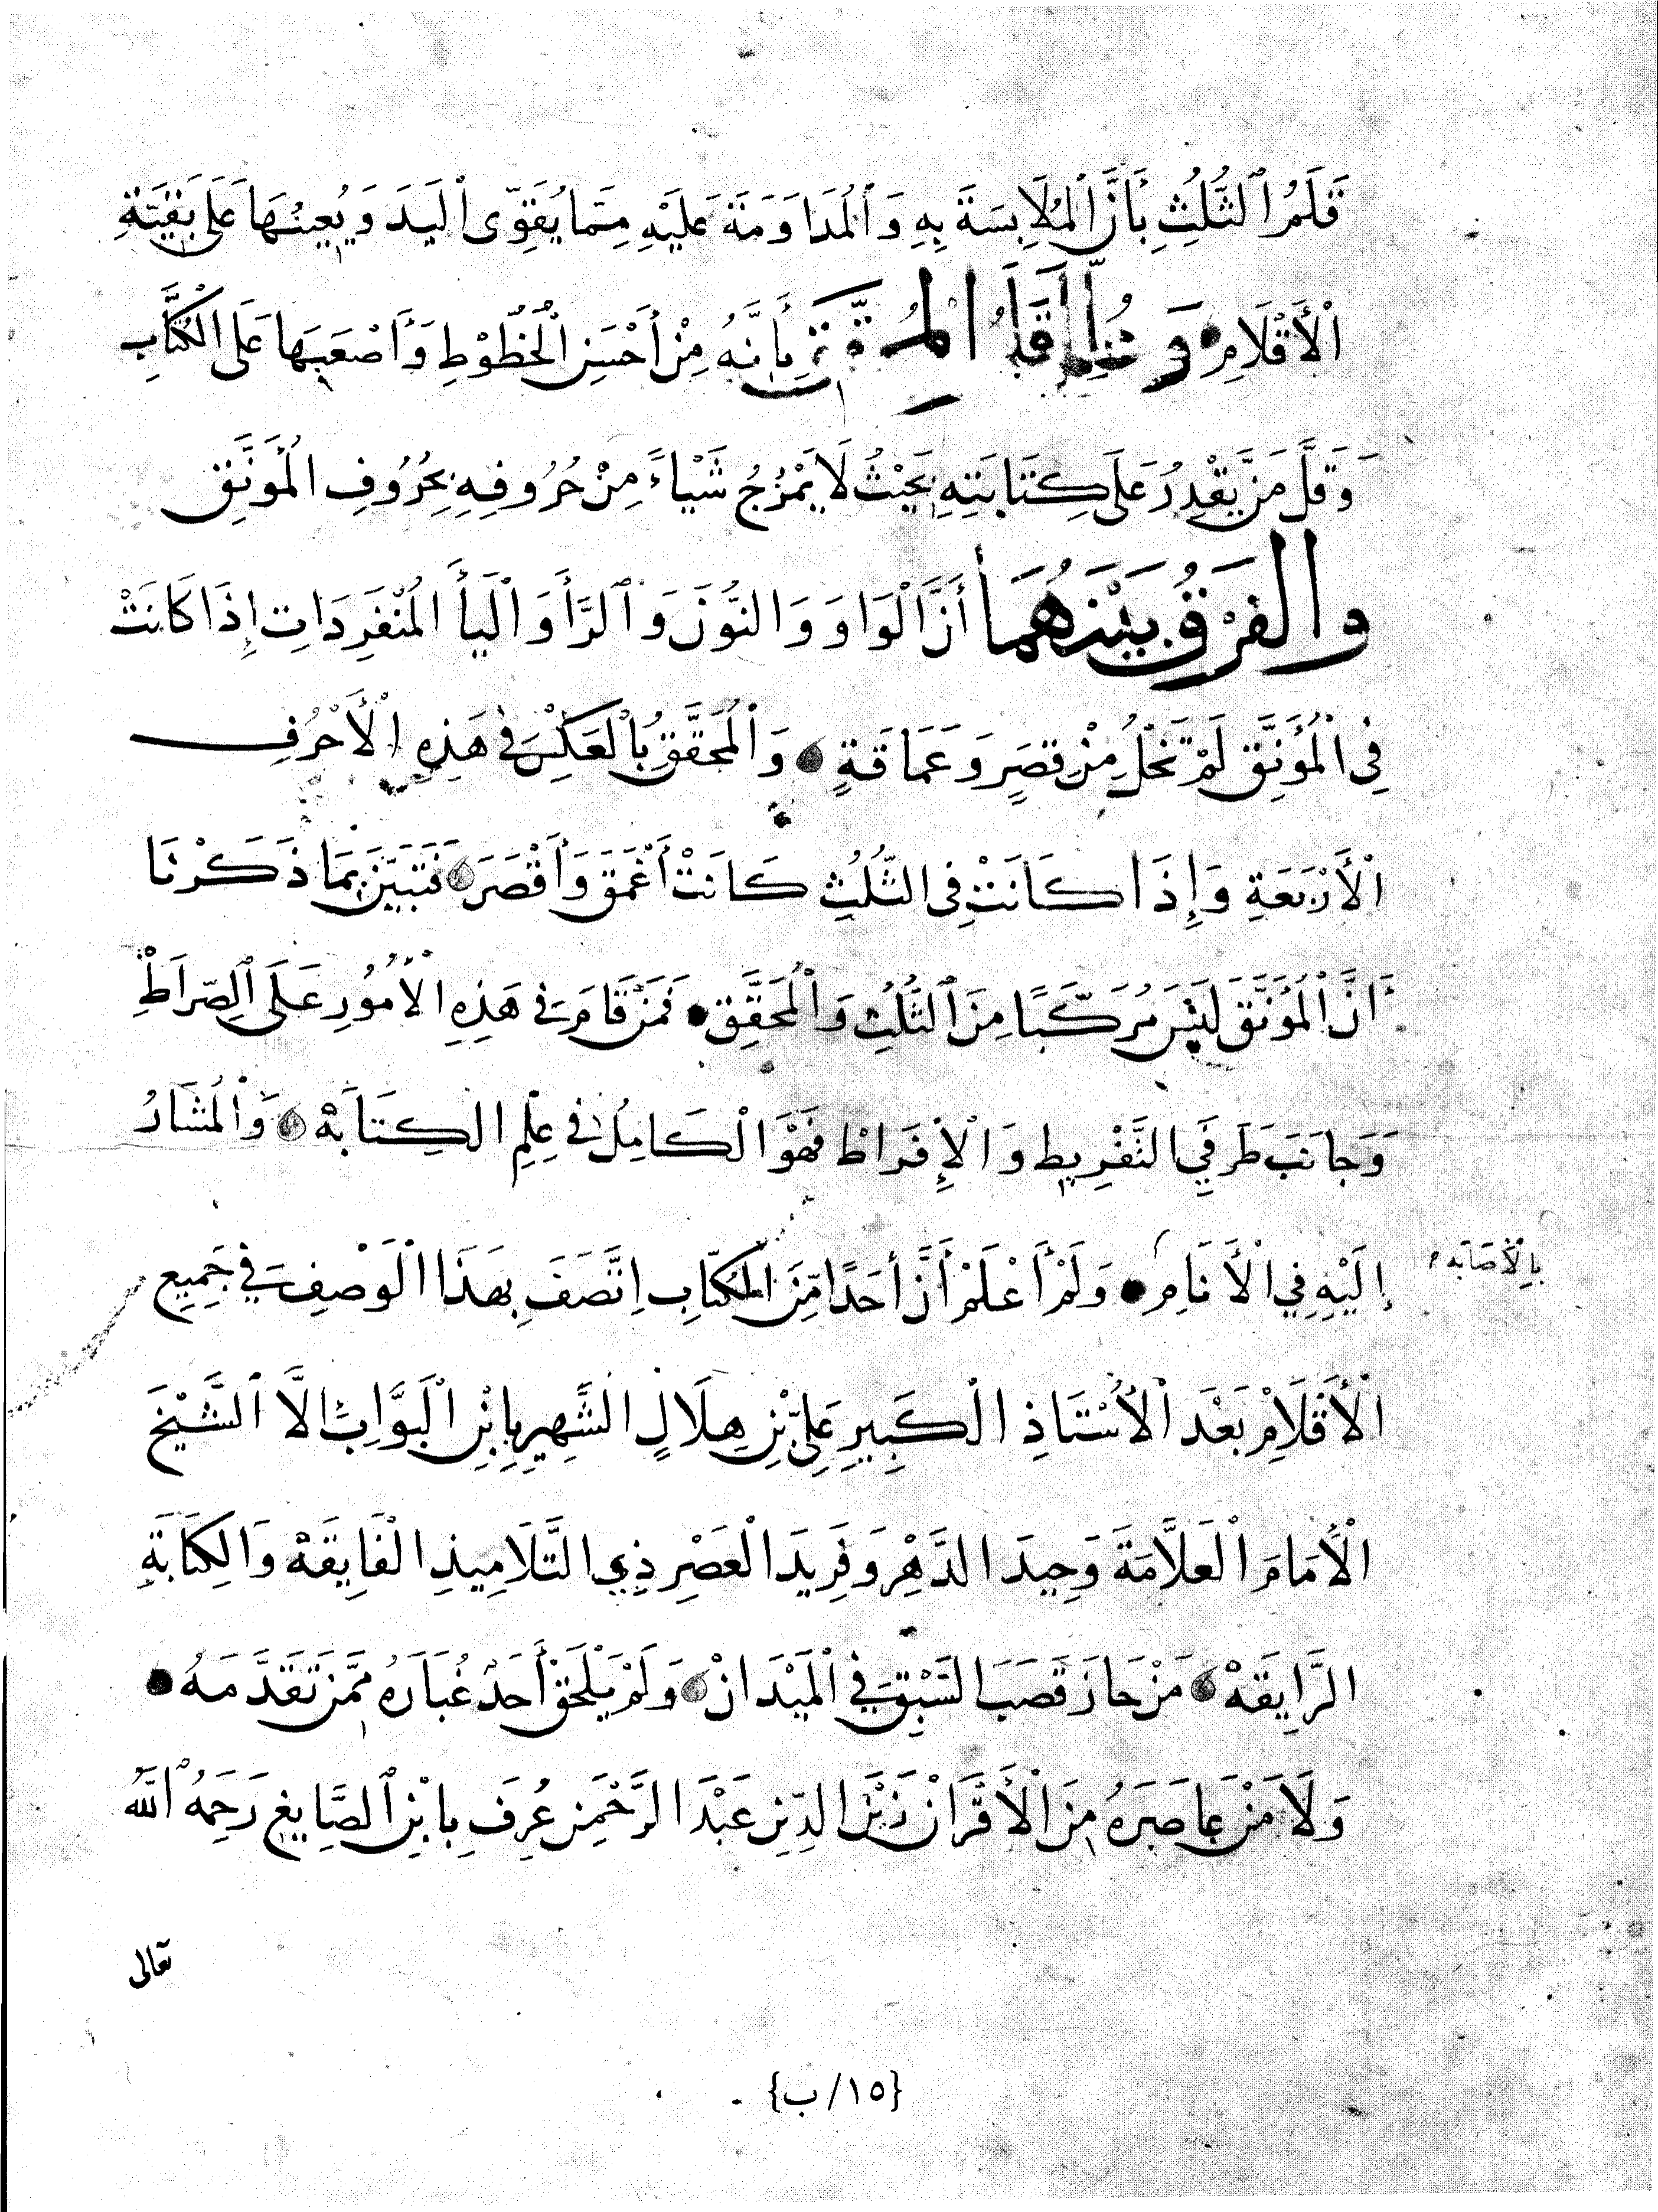 قَلَمُ ٱلثُّلُثِ بِأَنَّ ٱلْمُلَابَسَةَ بِهِ وَٱلْمُدَاوَمَةَ عَلَيْهِ مِمَّا يُقَوِّى ٱلْيَدَ وَيُعِينُهَا عَلَى بَقِيَّةِ
ٱلْأَقْلَامِ بِأَنَّهُ مِنْ أَحْسَنِ ٱلْخُطُوْطِ وَأَصْعَبِهَا عَلَى الْكُتَّابِ
وَقَلَّ مَنْ يَقْدِرُ عَلَى كِتَابَتِهِ بِحَيْثُ لَا يَمْزُجُ شَيْاءً مِنْ حُرُوفِهِ بِحُرُوفِ الْمُؤَنَّقِ
والفَرْقُ بَيْنَهُمَا أَنَّ الْوَاوَ وَالنُّونَ وَٱلرَّأَ وَالْيَأَ الْمُنْفَرِدَاتِ إِذَا كَانَتْ
فِي الْمُؤَنَّقِ لَمْ تَخْلُ مِنْ قِصَرٍ وَعَمَاقَةٍ وَالْمُحَقَّقُ بِالْعَكْسِ فِي هَذِهِ الْأَحْرُفِ
الْأَرْبَعَةِ وَإِذَا كَانَتْ فِي الثُّلُثِ كَانَتْ أَعْمَقَ وَأَقْصَرَ فَتَبَيَّنَ بِمَا ذَكَرْنَا
أَنَّ الْمُؤَنَّقَ لَيْسَ مُرَكَّبًا مِنَ ٱلثُّلُثِ وَالْمُحَقَّقِ فَمَنْ قَامَ فِي هَذِهِ الْأُمُورِ عَلَى ٱلصِّرَاطْ
وَجَانَبَ طَرَفَيِ التَّفْرِيطِ وَالْإِفْرَاطْ فَهْوَ الْكَامِلُ فِي عِلْمِ الْكِتَابَهْ وَالْمُشَارُ
إِلَيْهِ فِي الْأَنَامِ وَلَمْ أَعْلَمْ أَنَّ أَحَدًا مِنَ الْكُتَّابِ اِتَّصَفَ بِهَذَا الْوَصْفِ فِي جَمِيعِ
بِالْأَصَابَهْ
الْأَقْلَامِ بَعْدَ الْأُسْتَاذِ الْكَبِيرِ عَلِيِّ بْنِ هِلَالٍ الشَّهِيرِ بِابْنِ الْبَوَّابِ الَّا ٱلشَّيْخَ
الْأَمَامَ الْعَلَّامَةَ وَحِيدَ الدَّهْرِ وَفَرِيدَ الْعَصْرِ ذِي التَّلَامِيذِ الْفَايِقَهْ وَالْكِتَابَةِ
الرَّايِقَهْ مَنْ حَازَ قَصَبَ السَّبْقِ فِي الْمَيْدَانْ وَلَمْ يَلْحَقْ أَحَدٌ غُبَارَهُ مِمَّنْ تَقَدَّمَهُ
وَلَا مَنْ عَاصَرَهُ مِنَ الْأَقْرَانْ زَيْنَ الدِّينِ عَبْدَ الرَّحْمَنِ عُرِفَ بِابْنِ ٱلصَّايِغِ رَحِمَهُ اللَّهُ
تعالى
{١٥/ب}